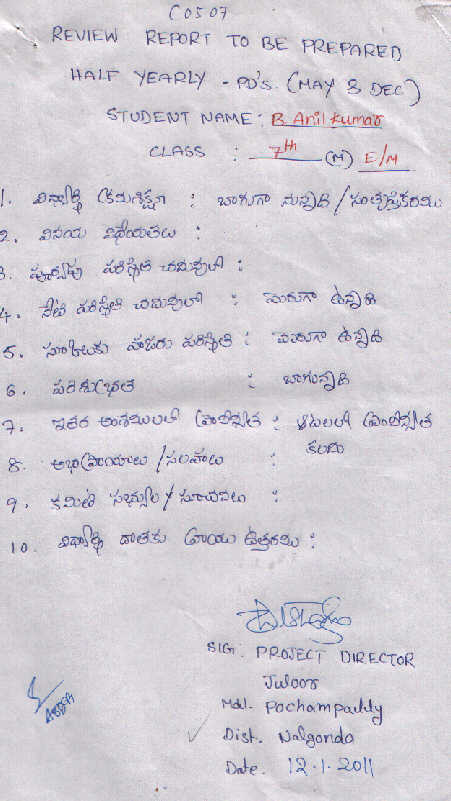 C0507
REVIEW REPORT TO BE PREPARED
HALF YEARLY - PD'S. (MAY & DEC)
STUDENT NAME: B. Anil kumar
CLASS : 7th (M) E/M
1. విద్యార్థి క్రమశిక్షణ : బాగుగా నున్నది / సంతృప్తికరము
2. వినయ విధేయతలు :
3. పూర్వపు పరిస్థితి చదువులో :
4. నేటి పరిస్థితి చదువులో : మెరుగా ఉన్నది
5. స్కూలుకు హాజరు పరిస్థితి : మెరుగా ఉన్నది
6. పరిశుభ్రత : బాగున్నది
7. ఇతర అంశములలో ప్రావీణ్యత : ఆటలలో ప్రావీణ్యత
కలదు
8. అభిప్రాయాలు / సలహాలు :
9. కమిటి సభ్యుల / సూచనలు :
10. విద్యార్థి దాతకు వ్రాయు ఉత్తరము :
SIG: PROJECT DIRECTOR
Juloor
Mdl. Pochampally
Dist. Nalgonda
Date. 12.1.2011